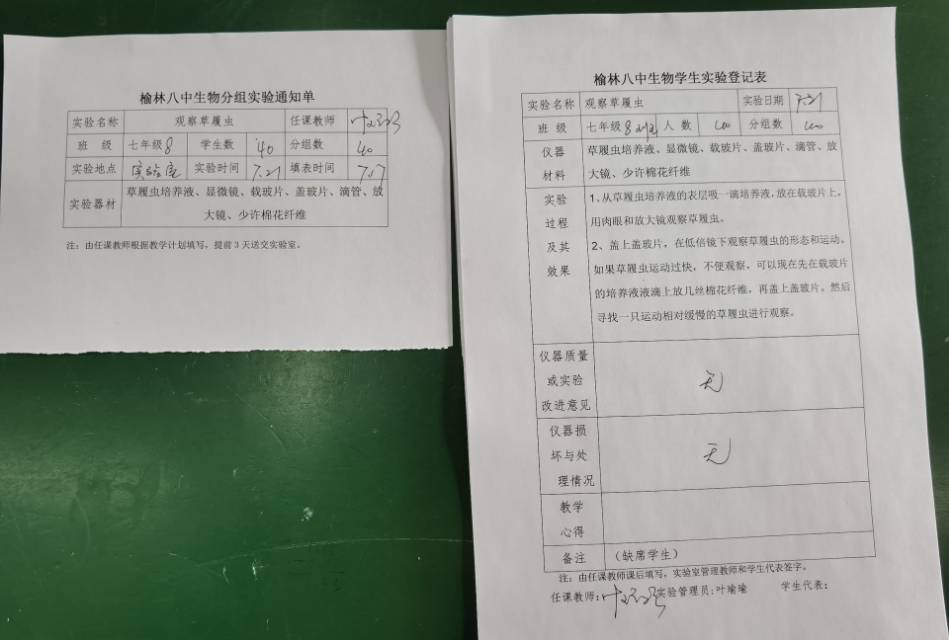 榆林八中生物分组实验通知单
实验名称 观察草履虫 任课教师
班 级 七年级8 学生数 40 分组数 40
实验地点 实验室 实验时间 7.21 填表时间 7.17
实验器材 草履虫培养液、显微镜、载玻片、盖玻片、滴管、放
大镜、少许棉花纤维
注：由任课教师根据教学计划填写，提前3天送交实验室。
榆林八中生物学生实验登记表
实验名称 观察草履虫 实验日期 7.21
班 级 七年级8 人 数 分组数
仪器 草履虫培养液、显微镜、载玻片、盖玻片、滴管、放
材料 大镜、少许棉花纤维
实验 1、从草履虫培养液的表层吸一滴培养液，放在载玻片上，
过程 用肉眼和放大镜观察草履虫。
及其 2、盖上盖玻片，在低倍镜下观察草履虫的形态和运动。
效果 如果草履虫运动过快，不便观察，可以现在先在载玻片
的培养液液滴上放几丝棉花纤维，再盖上盖玻片，然后
寻找一只运动相对缓慢的草履虫进行观察。
仪器质量
或实验 无
改进意见
仪器损
坏与处 无
理情况
教学
心得
备注 （缺席学生）
注：由任课教师课后填写，实验室管理教师和学生代表签字。
任课教师： 实验管理员：叶瑜瑜 学生代表：